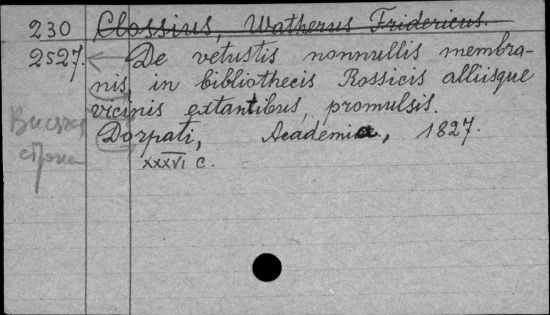 230 Clossius, Watherus Fridericus.
2527. De vetustis nonnullis membra-
nis, in bibliothecis Rossicis alliisque
vicinis extantibus, promulsis.
Dorpati, Academia, 1827.
XXXVI c.
Висячая
строка